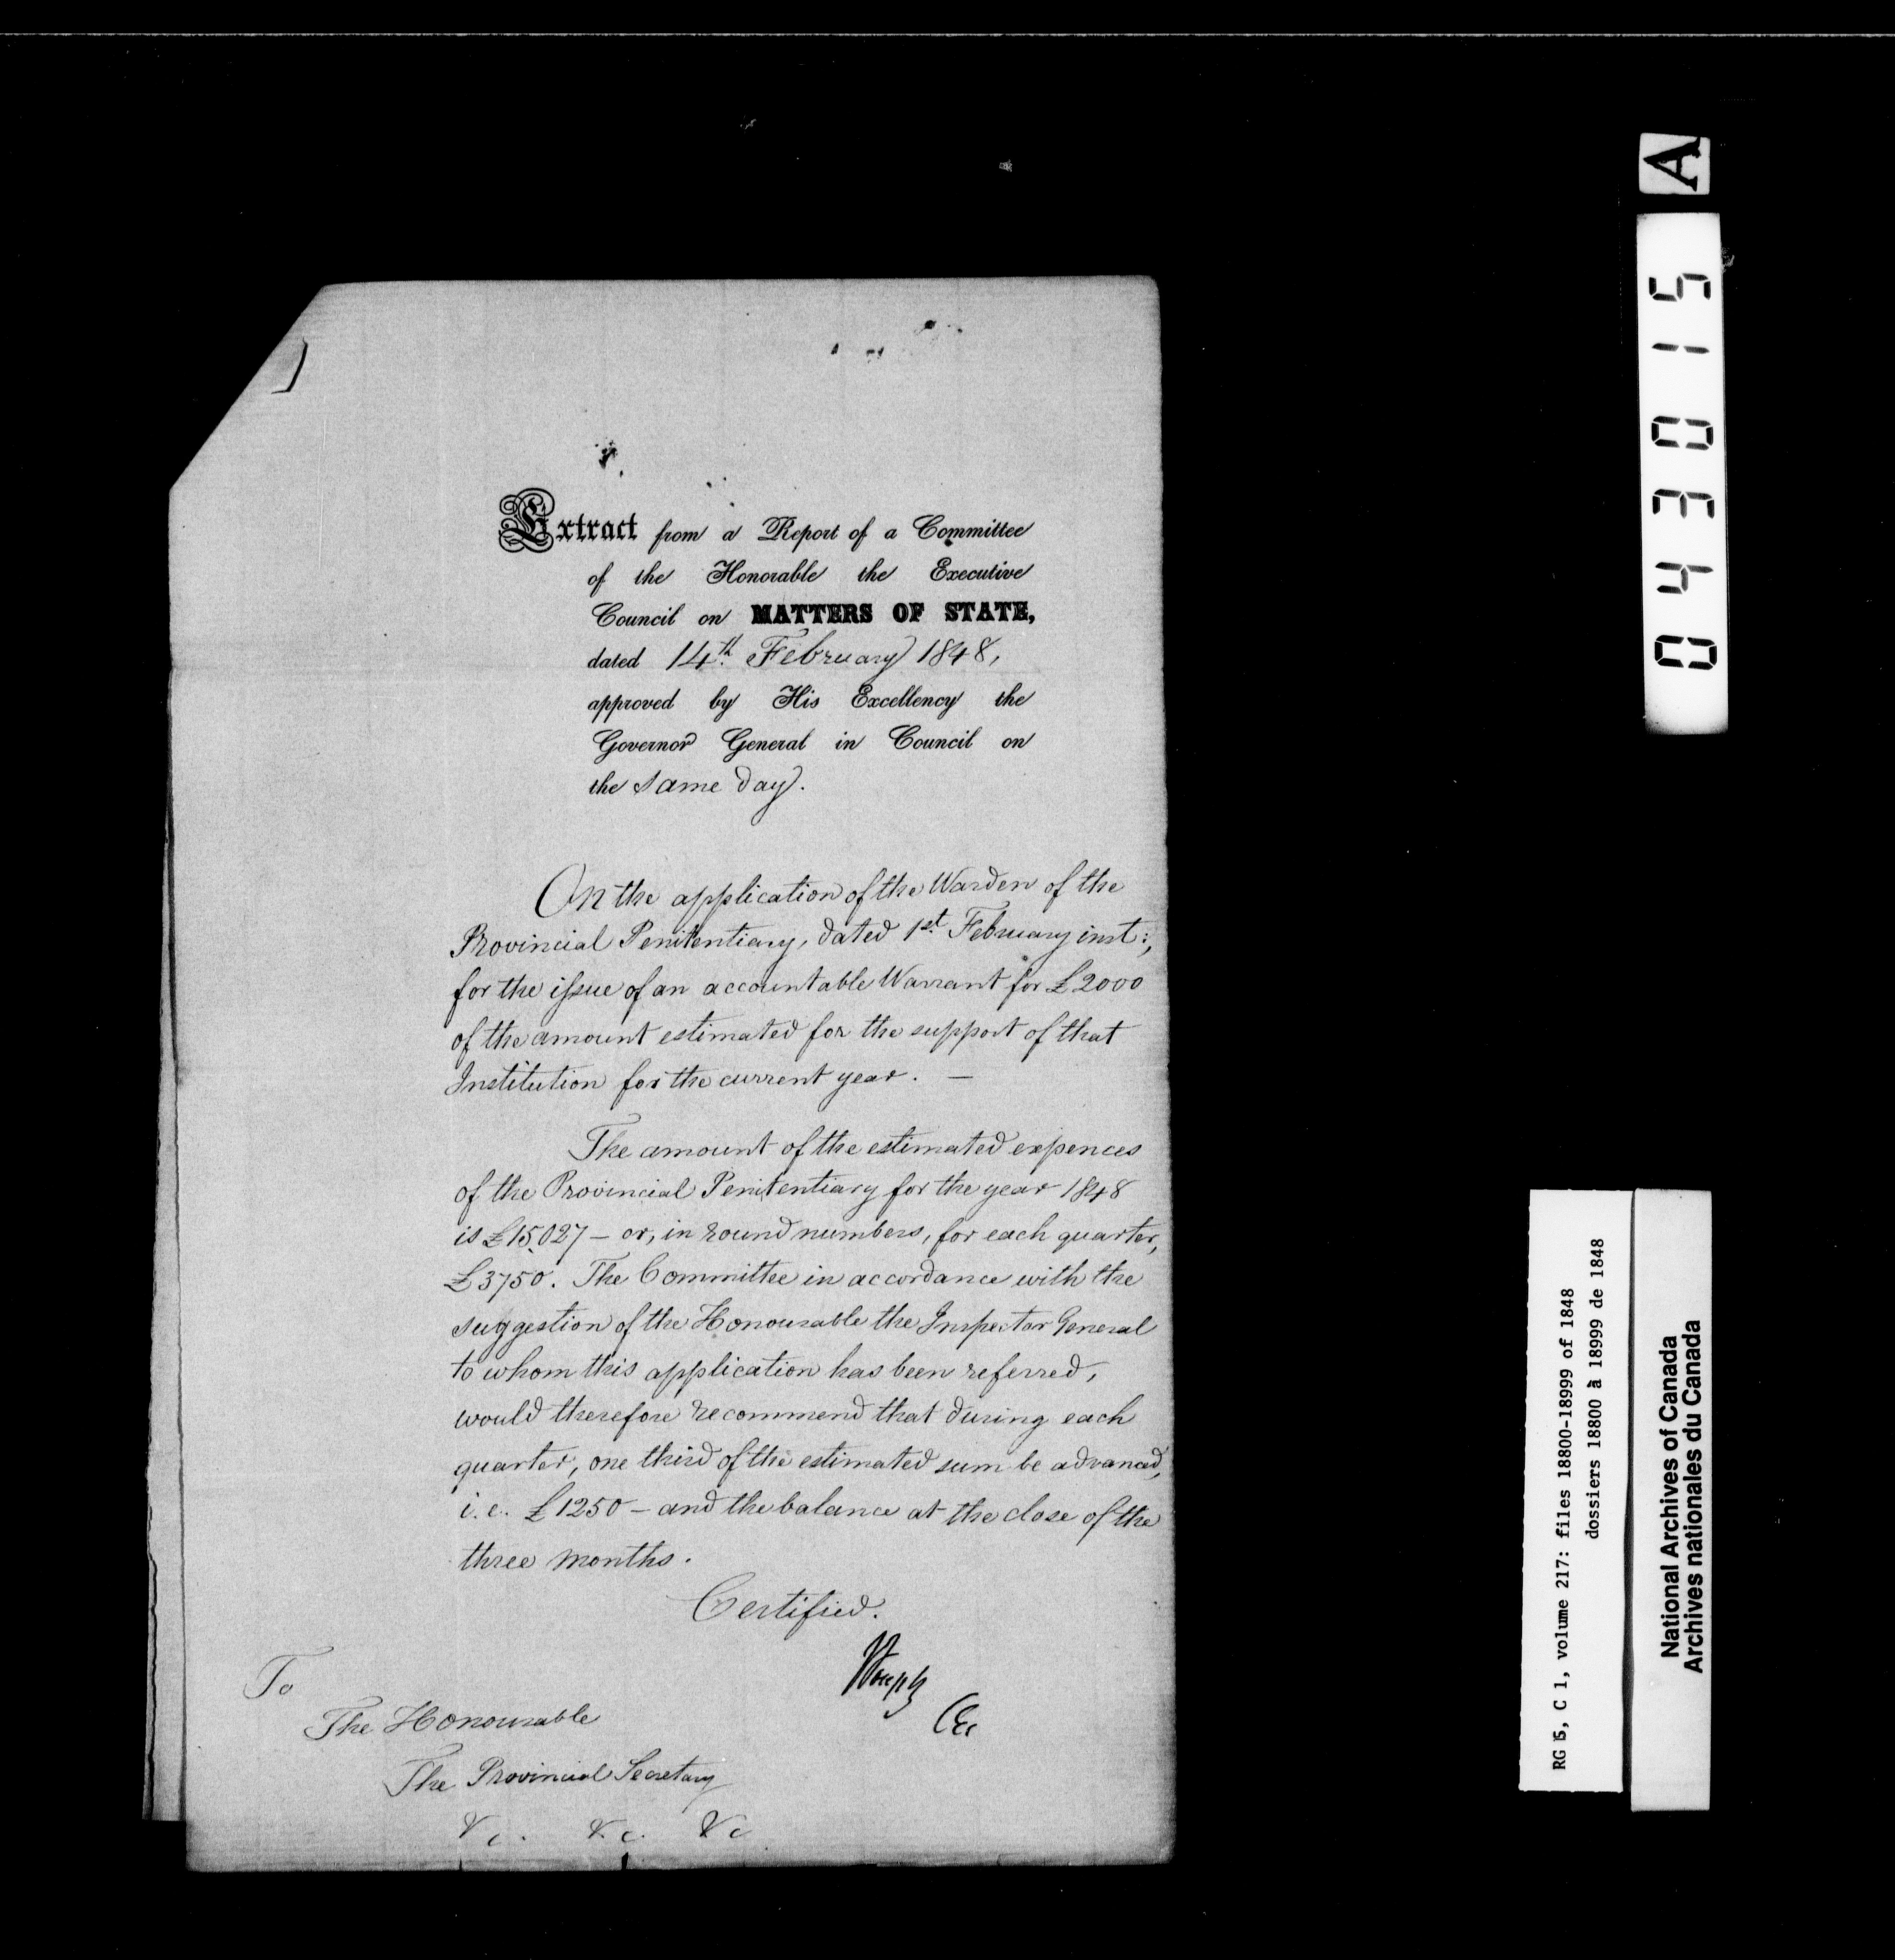 Extract from a Report of a Committee
of the Honorable the Executive
Council on MATTERS OF STATE,
dated 14th. February 1848,
approved by His Excellency the
Governor General in Council on
the same day.
On the application of the Warden of the
Provincial Penitentiary, dated 1st. February inst:,
for the issue of an accountable Warrant for £2000
of the amount estimated for the support of that
Institution for the current year. —
The amount of the estimated expences
of the Provincial Penitentiary for the year 1848
is £15,027 – or, in round numbers, for each quarter,
£3750. The Committee in accordance with the
suggestion of the Honourable the Inspector General
to whom this application has been referred,
would therefore recommend that during each
quarter, one third of the estimated sum be advanced,
i.e. £1250 – and the balance at the close of the
three months.
Certified.
To
The Honourable
The Provincial Secretary
&c. &c. &c
A
043015
RG 5, C 1, volume 217: files 18800-18999 of 1848
dossiers 18800 à 18999 de 1848
National Archives of Canada
Archives nationales du Canada